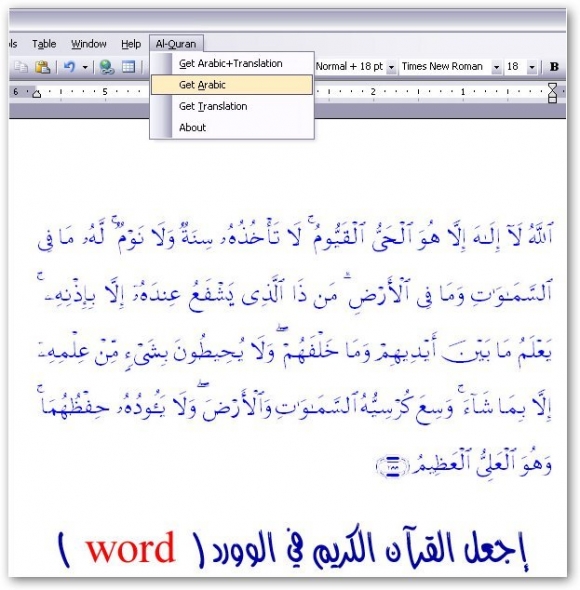 Table Window Help Al-Quran
Normal + 18 pt Times New Roman 18 B
Get Arabic+Translation
Get Arabic
Get Translation
About
6 5 2 1
ٱللَّهُ لَآ إِلَـٰهَ إِلَّا هُوَ ٱلْحَىُّ ٱلْقَيُّومُ ۚ لَا تَأْخُذُهُۥ سِنَةٌ وَلَا نَوْمٌ ۚ لَّهُۥ مَا فِى
ٱلسَّمَـٰوَٰتِ وَمَا فِى ٱلْأَرْضِ ۗ مَن ذَا ٱلَّذِى يَشْفَعُ عِندَهُۥٓ إِلَّا بِإِذْنِهِۦ ۚ
يَعْلَمُ مَا بَيْنَ أَيْدِيهِمْ وَمَا خَلْفَهُمْ ۖ وَلَا يُحِيطُونَ بِشَىْءٍ مِّنْ عِلْمِهِۦٓ
إِلَّا بِمَا شَآءَ ۚ وَسِعَ كُرْسِيُّهُ ٱلسَّمَـٰوَٰتِ وَٱلْأَرْضَ ۖ وَلَا يَـُٔودُهُۥ حِفْظُهُمَا ۚ
وَهُوَ ٱلْعَلِىُّ ٱلْعَظِيمُ
إجعل القرآن الكريم في الوورد ( word )